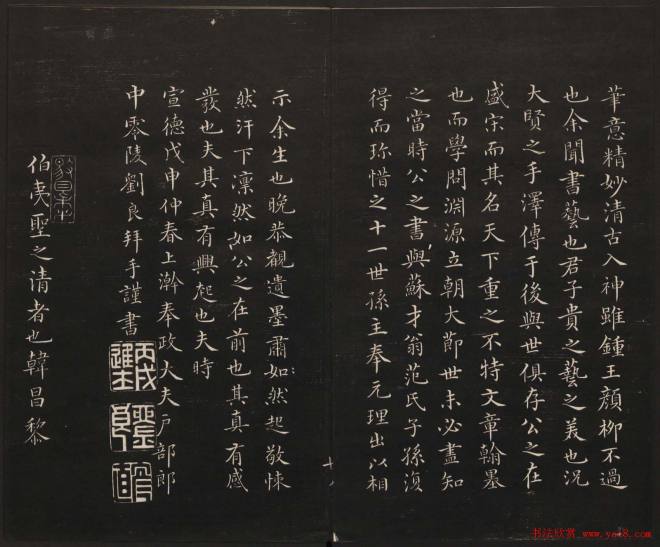 華意精妙清古入神雖鍾王顏柳不過
也余聞書藝也君子貴之藝之美也況
大賢之手澤傳于後與世俱存公之在
盛宋而其名天下重之不特文章翰墨
也而學問淵源立朝大節世未必盡知
之當時公之書與蘇才翁范氏子孫復
得而珎惜之十一世孫主奉元理出以相
示余生也晚恭觀遺墨肅如然起敬悚
然汗下凛然如公之在前也其真有感
發也夫其真有興起也夫時
宣德戊申仲春上澣奉政大夫戶部郎
中零陵劉良拜手謹書
丙戌進士
伯夷聖之清者也韓昌黎
书法欣赏 www.yac8.com